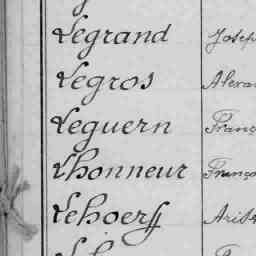 Legrand Josep
Legros Alexa
Leguern Franç
Lhonneur Franço
Lehoerff Arist